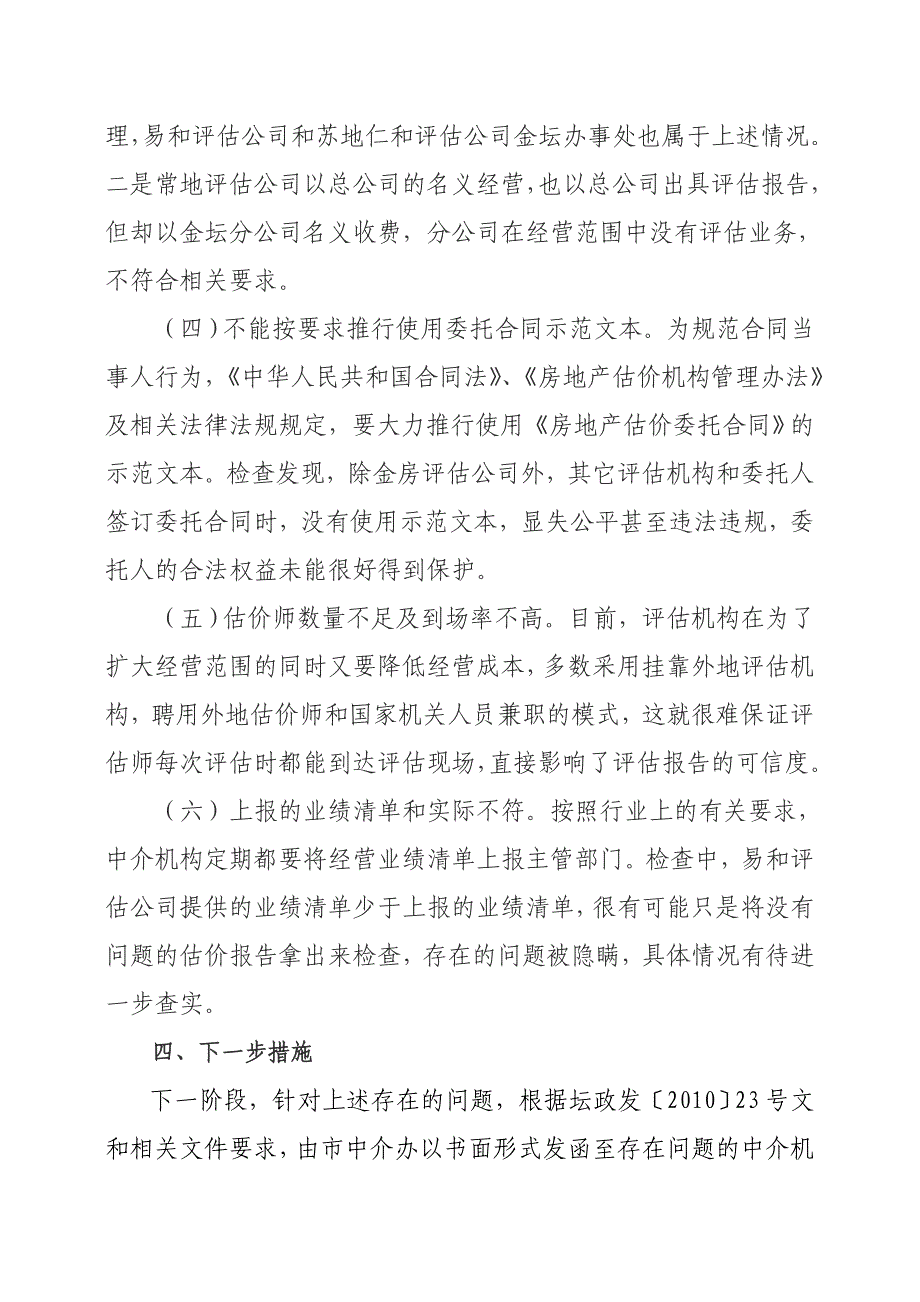 理，易和评估公司和苏地仁和评估公司金坛办事处也属于上述情况。
二是常地评估公司以总公司的名义经营，也以总公司出具评估报告，
但却以金坛分公司名义收费，分公司在经营范围中没有评估业务，
不符合相关要求。
（四）不能按要求推行使用委托合同示范文本。为规范合同当
事人行为，《中华人民共和国合同法》、《房地产估价机构管理办法》
及相关法律法规规定，要大力推行使用《房地产估价委托合同》的
示范文本。检查发现，除金房评估公司外，其它评估机构和委托人
签订委托合同时，没有使用示范文本，显失公平甚至违法违规，委
托人的合法权益未能很好得到保护。
（五）估价师数量不足及到场率不高。目前，评估机构在为了
扩大经营范围的同时又要降低经营成本，多数采用挂靠外地评估机
构，聘用外地估价师和国家机关人员兼职的模式，这就很难保证评
估师每次评估时都能到达评估现场，直接影响了评估报告的可信度。
（六）上报的业绩清单和实际不符。按照行业上的有关要求，
中介机构定期都要将经营业绩清单上报主管部门。检查中，易和评
估公司提供的业绩清单少于上报的业绩清单，很有可能只是将没有
问题的估价报告拿出来检查，存在的问题被隐瞒，具体情况有待进
一步查实。
四、下一步措施
下一阶段，针对上述存在的问题，根据坛政发〔2010〕23号文
和相关文件要求，由市中介办以书面形式发函至存在问题的中介机